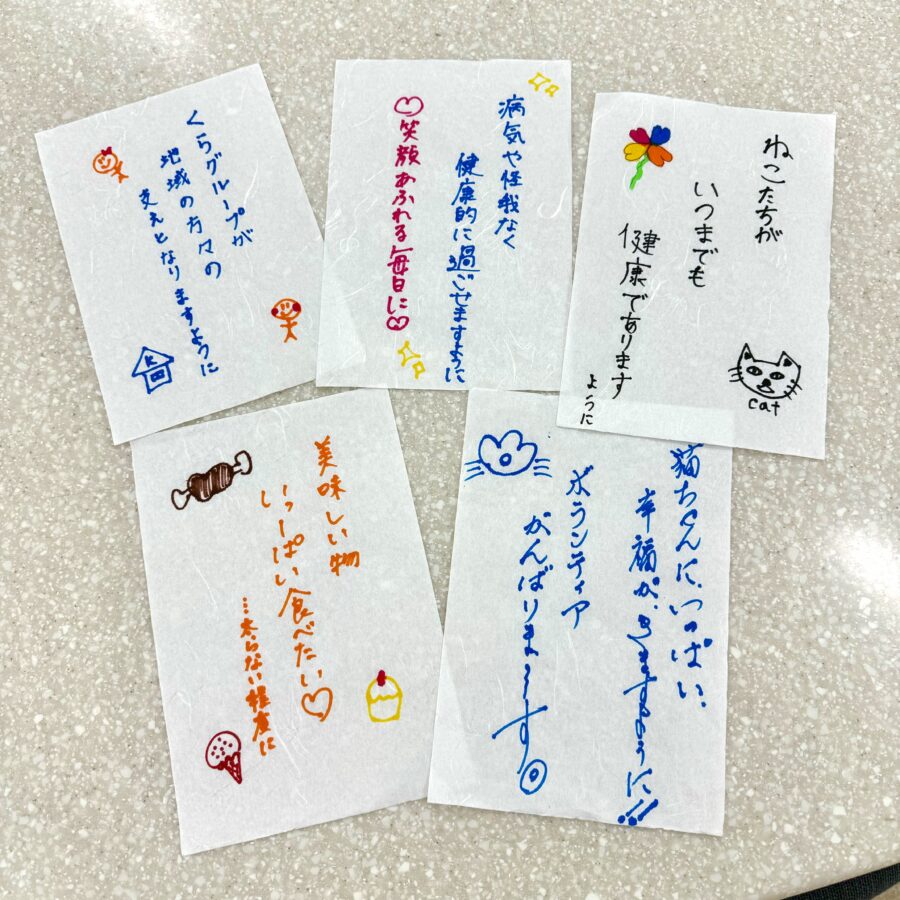 くらグループが
地域の方々の
支えとなりますように
病気や怪我なく
健康的に過ごせますように
♡笑顔あふれる毎日に♡
ねこたちが
いつまでも
健康であります
ように
cat
美味しい物
いっーぱい食べたい♡
…太らない程度に
猫ちゃんに、いっぱい、
幸福が、きますように!!!
ボランティア
がんばりま~~す◎